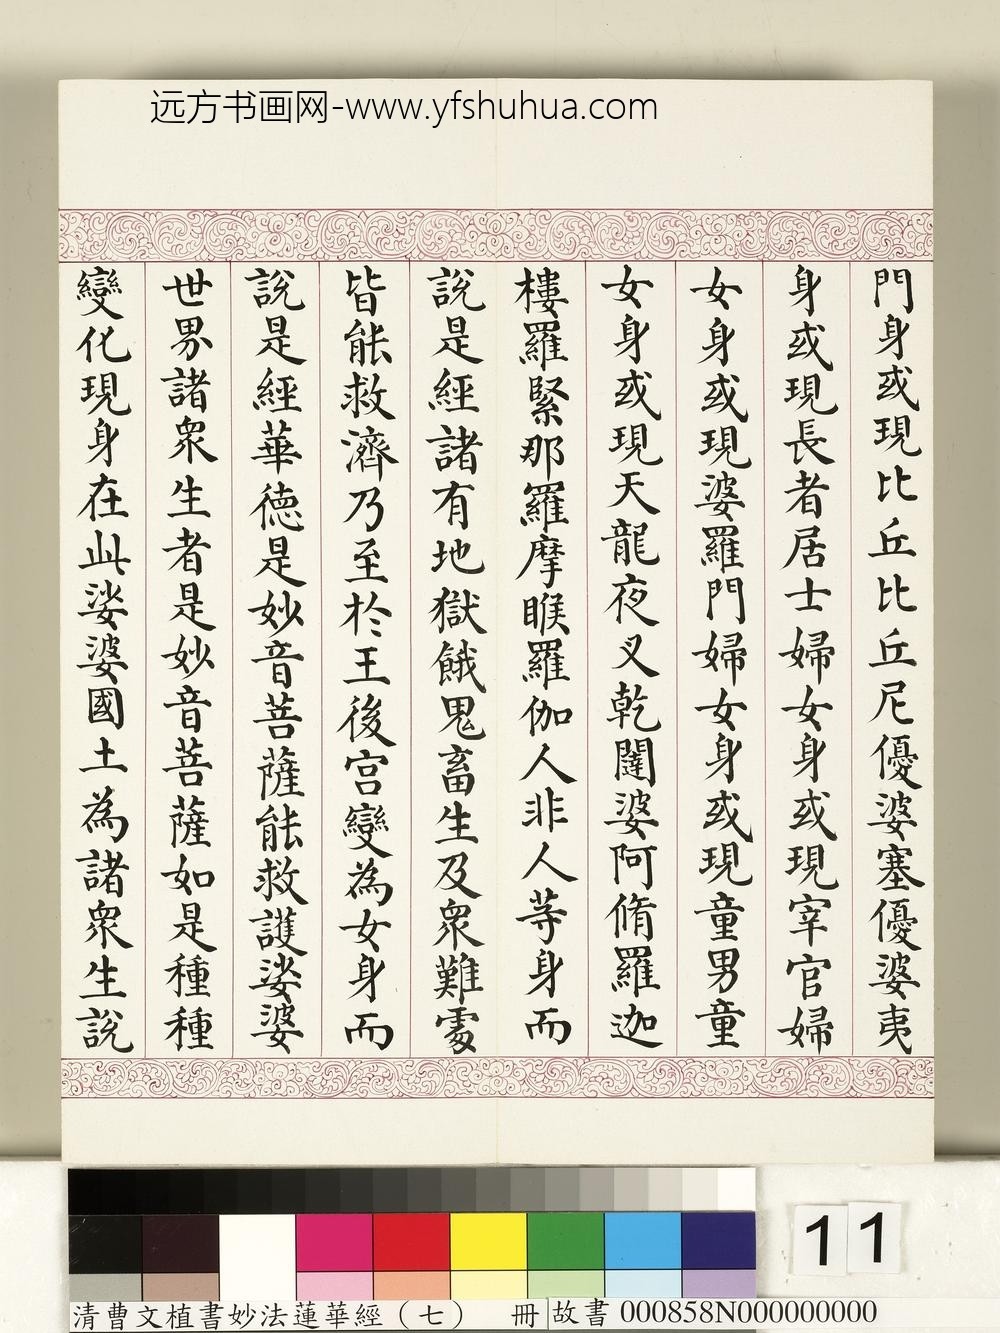 远方书画网-www.yfshuhua.com
門身或現比丘比丘尼優婆塞優婆夷
身或現長者居士婦女身或現宰官婦
女身或現婆羅門婦女身或現童男童
女身或現天龍夜叉乾闥婆阿脩羅迦
樓羅緊那羅摩睺羅伽人非人等身而
說是經諸有地獄餓鬼畜生及衆難處
皆能救濟乃至於王後宮變為女身而
說是經華德是妙音菩薩能救護娑婆
世界諸衆生者是妙音菩薩如是種種
變化現身在此娑婆國土為諸衆生說
11
清曹文植書妙法蓮華經（七） 冊 故書 000858N000000000